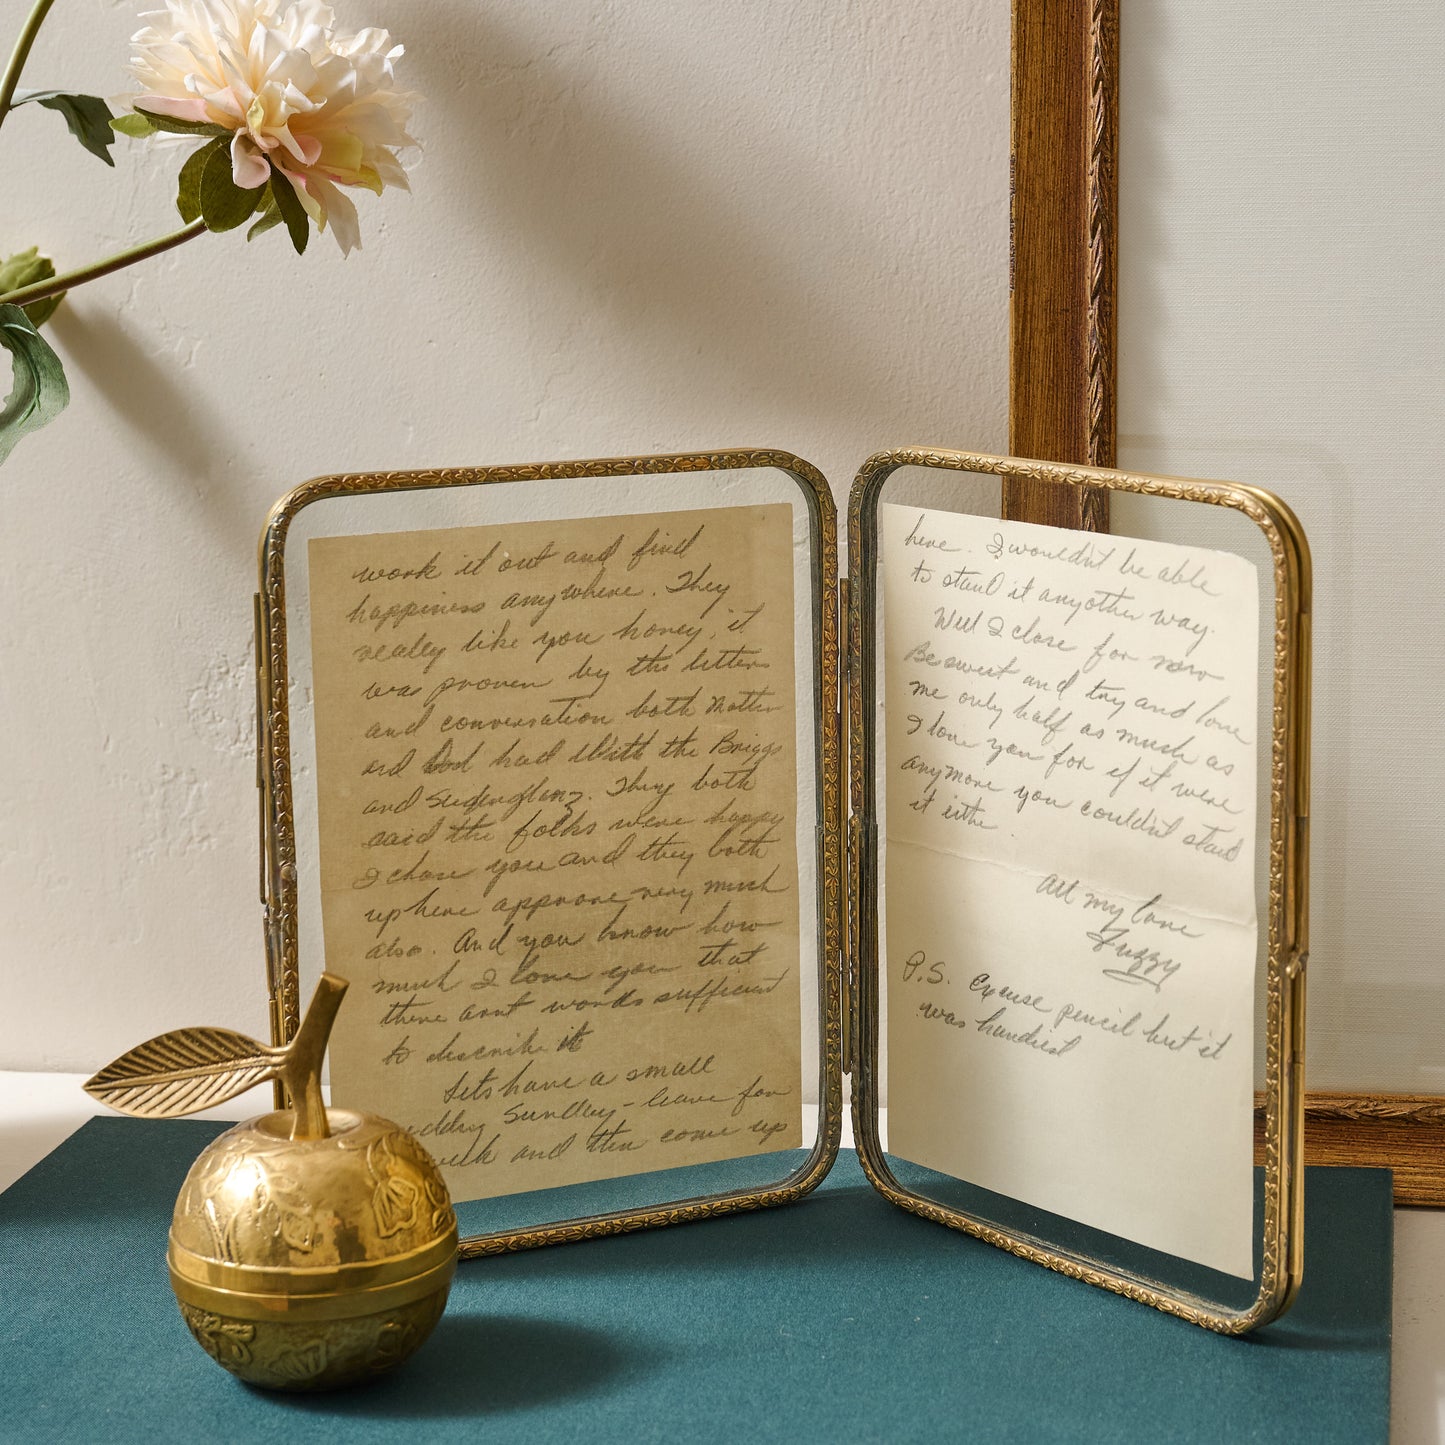 work it out and find
happiness anywhere. They
really like you honey, it
was proven by the letter
and conversation both Mother
and Dad had with the Briggs
and . They both
said the folks were happy
I chose you and they both
up here approve very much
also. And you know how
much I love you that
there arnt words sufficient
to describe it
Lets have a small
Sunday - leave for
week and then come up
here. I wouldn't be able
to stand it anyother way.
Well I close for now
Be sweet and try and love
me only half as much as
I love you for if it were
anymore you couldn't stand
it either.
All my love
Fuzzy
P.S. Excuse pencil but it
was handiest